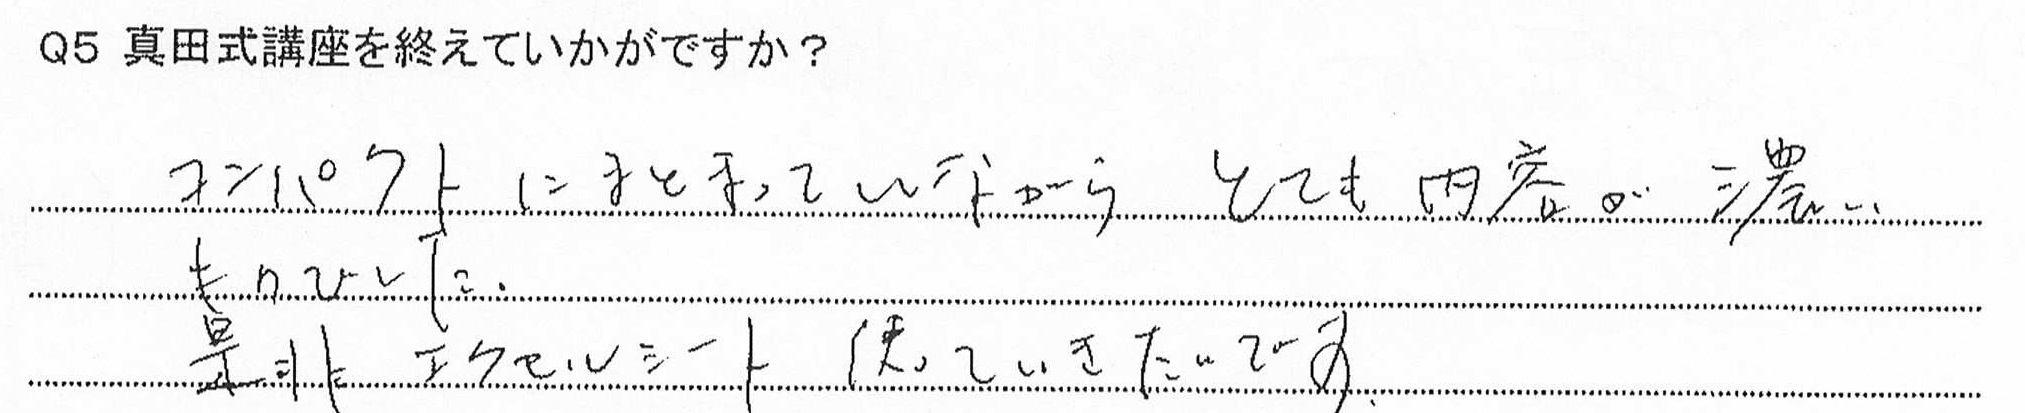 Q5 真田式講座を終えていかがですか？
コンパクトにまとまっていながら とても内容が濃い
ものでした.
是非 エクセルシート 使っていきたいです.